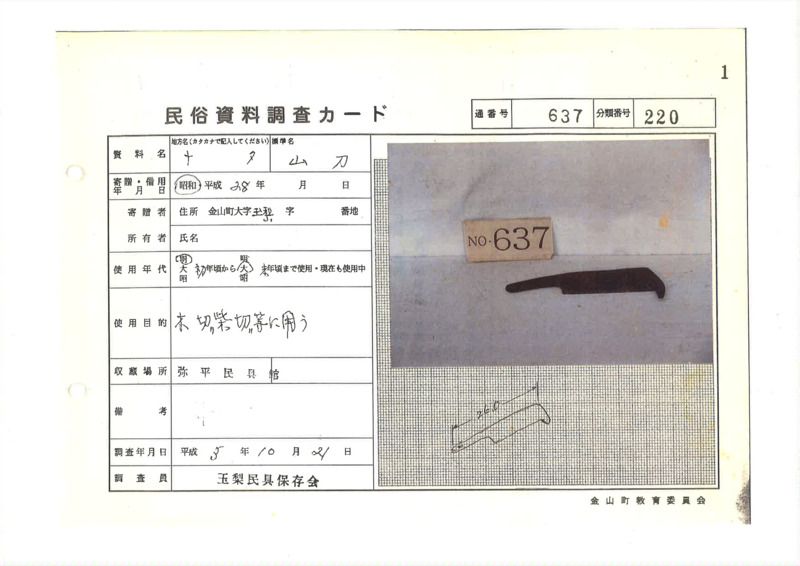 1
民俗資料調査カード
通番号 637 分類番号 220
資料名 地方名(カタカナで記入してください) ナタ 標準名 山刀
寄贈・借用年月日 昭和・平成 28年 月 日
寄贈者 住所 金山町大字玉梨 字 番地
所有者 氏名
使用年代 明大昭 初年頃から 明大昭 末年頃まで使用・現在も使用中
使用目的 木切、柴切、等に用う
収蔵場所 弥平民具館
備考
調査年月日 平成 5年 10月 21日
調査員 玉梨民具保存会
NO.637
26.0
金山町教育委員会